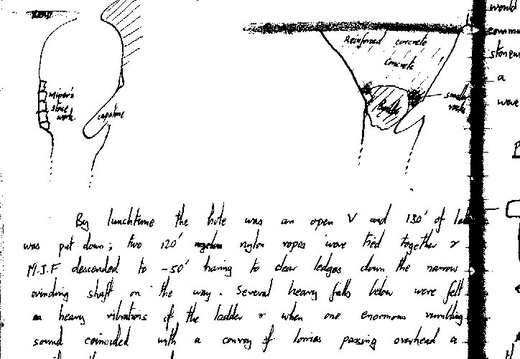 would
Reinforced concrete
Concrete
a
miner's
stone
work.
capstone
Boulder
small
rocks
were
By lunchtime the hole was an open V and 130' of
was put down; two 120' nylon ropes were tied together &
M.J.F descended to -50' having to clear ledges down the narrow
winding shaft on the way. Several heavy falls below were felt
as heavy vibrations of the ladder & when one enormous rumbling
sound coincided with a convoy of lorries passing overhead a